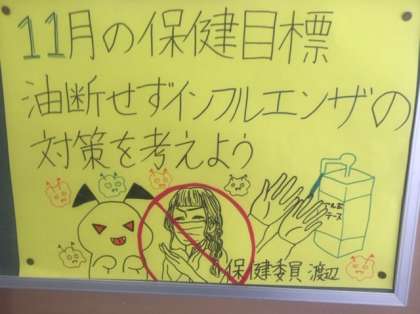 11月の保健目標
油断せずインフルエンザの
対策を考えよう
保健委員 渡辺